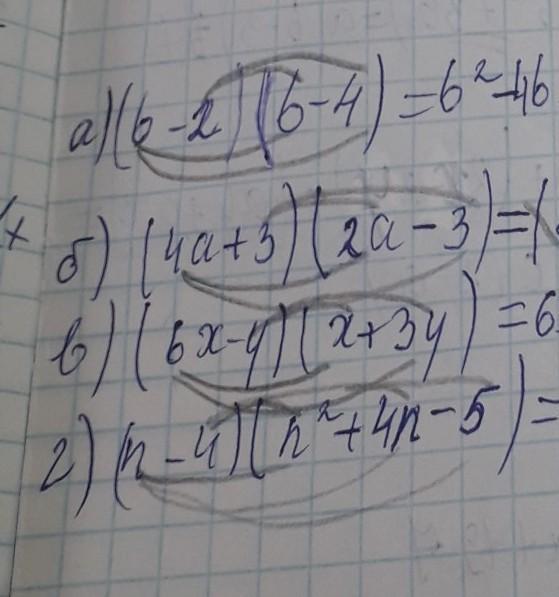 а) (b-2)(b-4)=b²-4b
б) (4a+3)(2a-3)=
в) (6x-y)(x+3y)=6
г) (n-4)(n²+4n-5)=